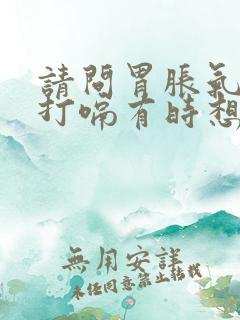 請問胃脹氣
打嗝有時想
無用安詳
未經同意禁止転載